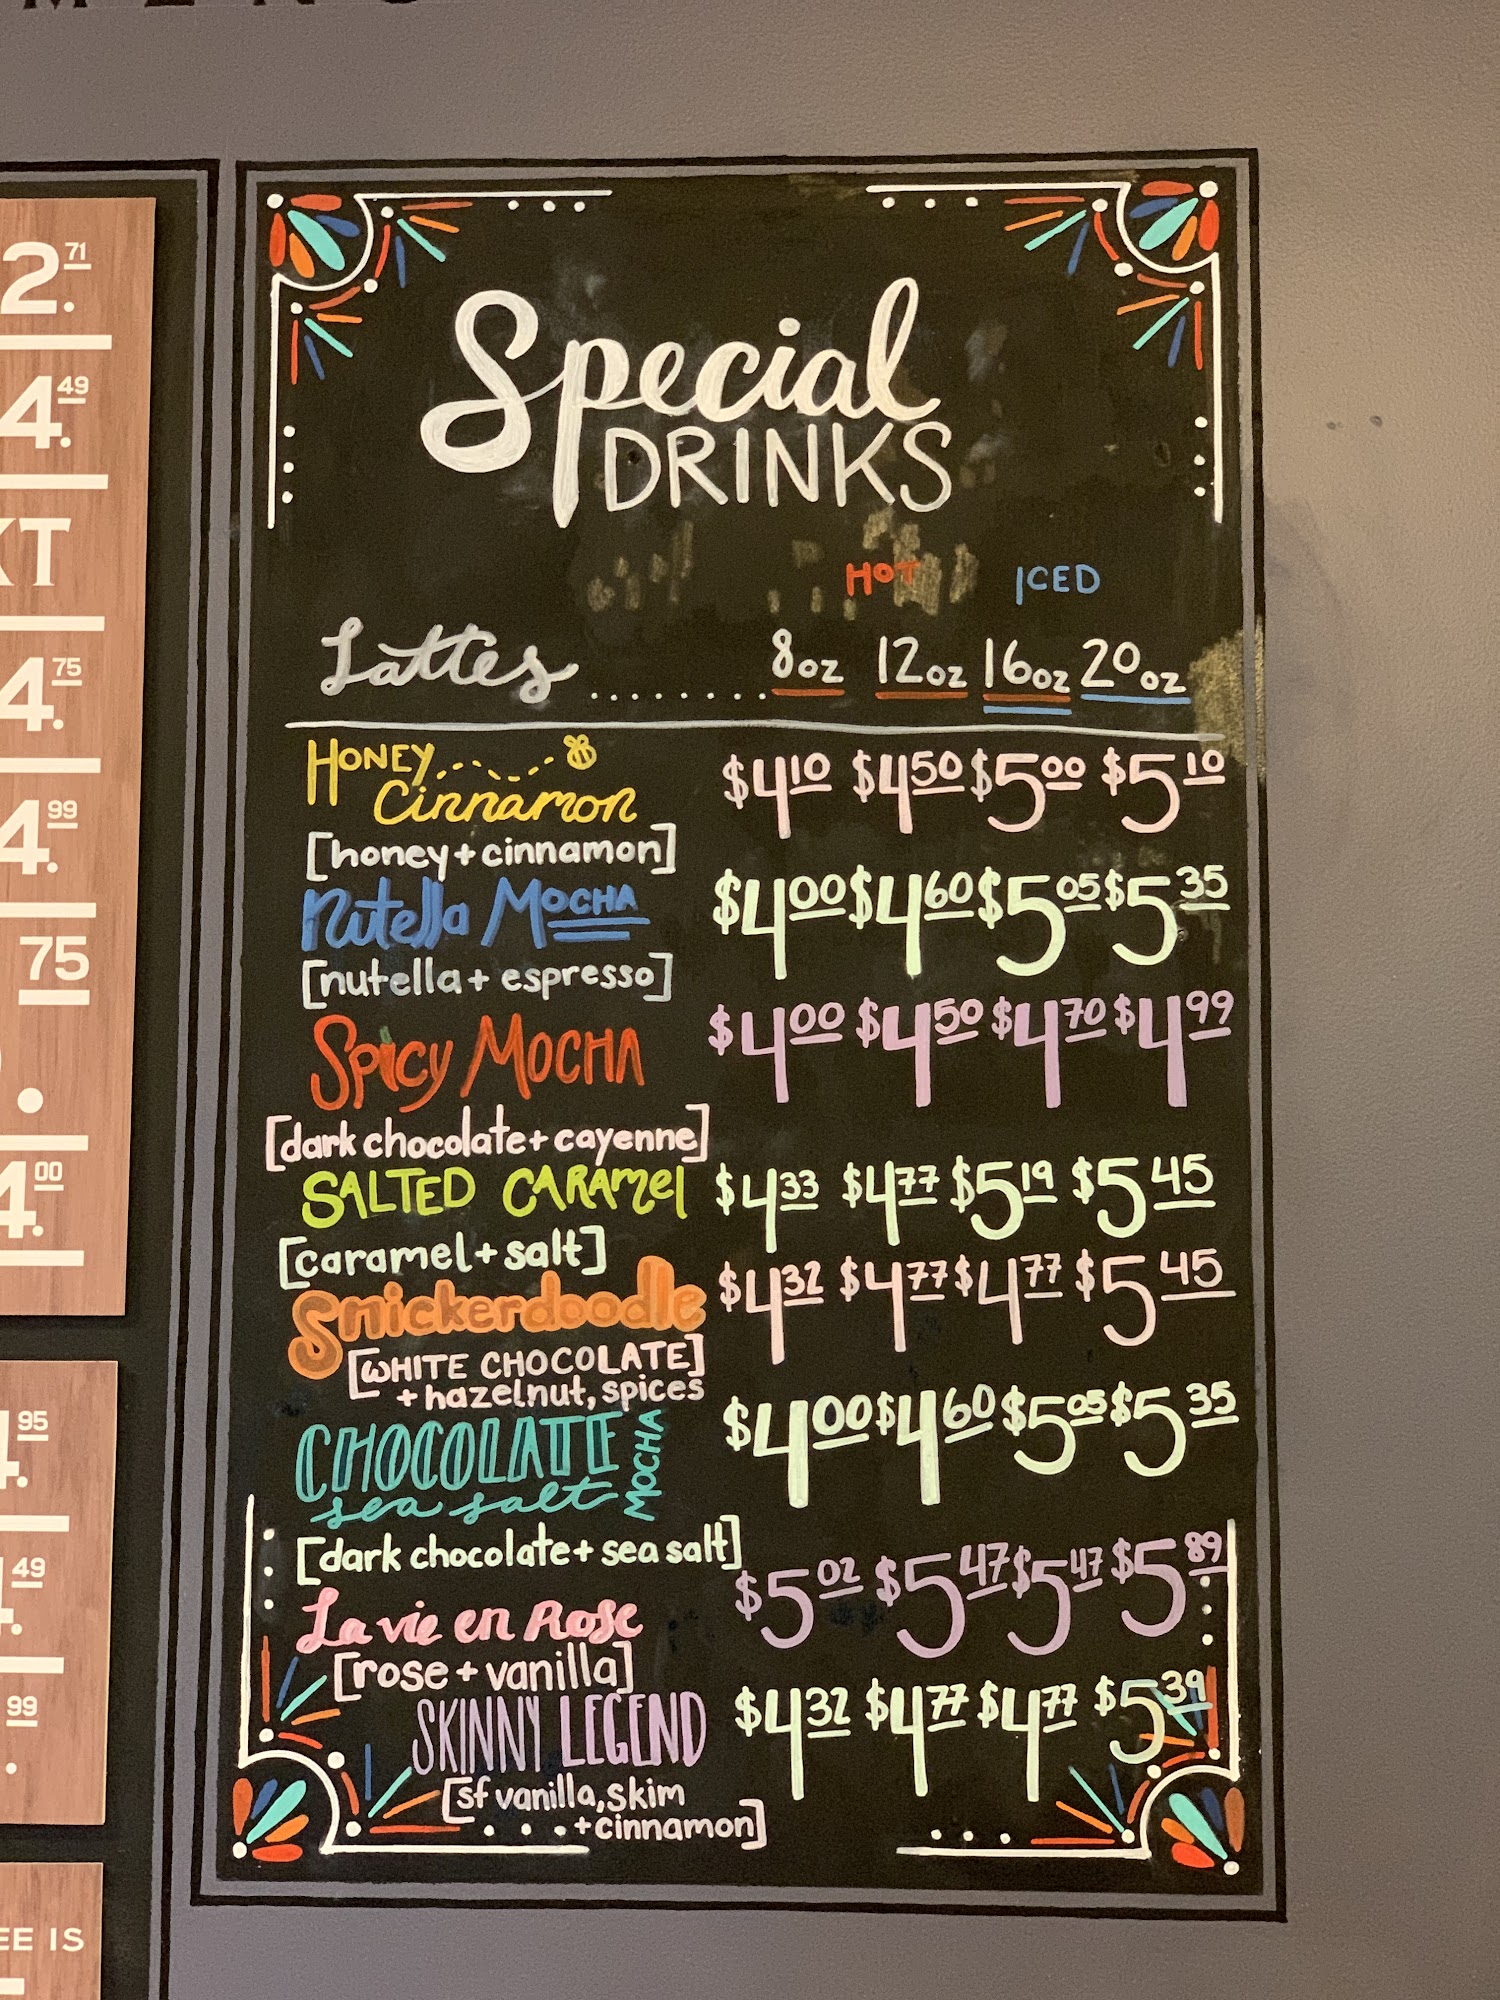 2.71
4.49
4.75
4.99
75
4.00
95
49
99
EE IS
Special
DRINKS
HOT ICED
Lattes ......... 8oz 12oz 16oz 20oz
HONEY Cinnamon $4.10 $4.50 $5.00 $5.10
[honey + cinnamon]
Nutella MOCHA $4.00 $4.60 $5.05 $5.35
[nutella + espresso]
Spicy MOCHA $4.00 $4.50 $4.70 $4.99
[dark chocolate + cayenne]
SALTED CARAMEl $4.33 $4.77 $5.19 $5.45
[caramel + salt]
Snickerdoodle $4.32 $4.77 $4.77 $5.45
[WHITE CHOCOLATE]
+ hazelnut, spices
CHOCOLATE sea salt MOCHA $4.00 $4.60 $5.05 $5.35
[dark chocolate + sea salt]
La vie en Rose $5.02 $5.47 $5.47 $5.89
[rose + vanilla]
SKINNY LEGEND $4.32 $4.77 $4.77 $5.39
[sf vanilla, skim
+ cinnamon]